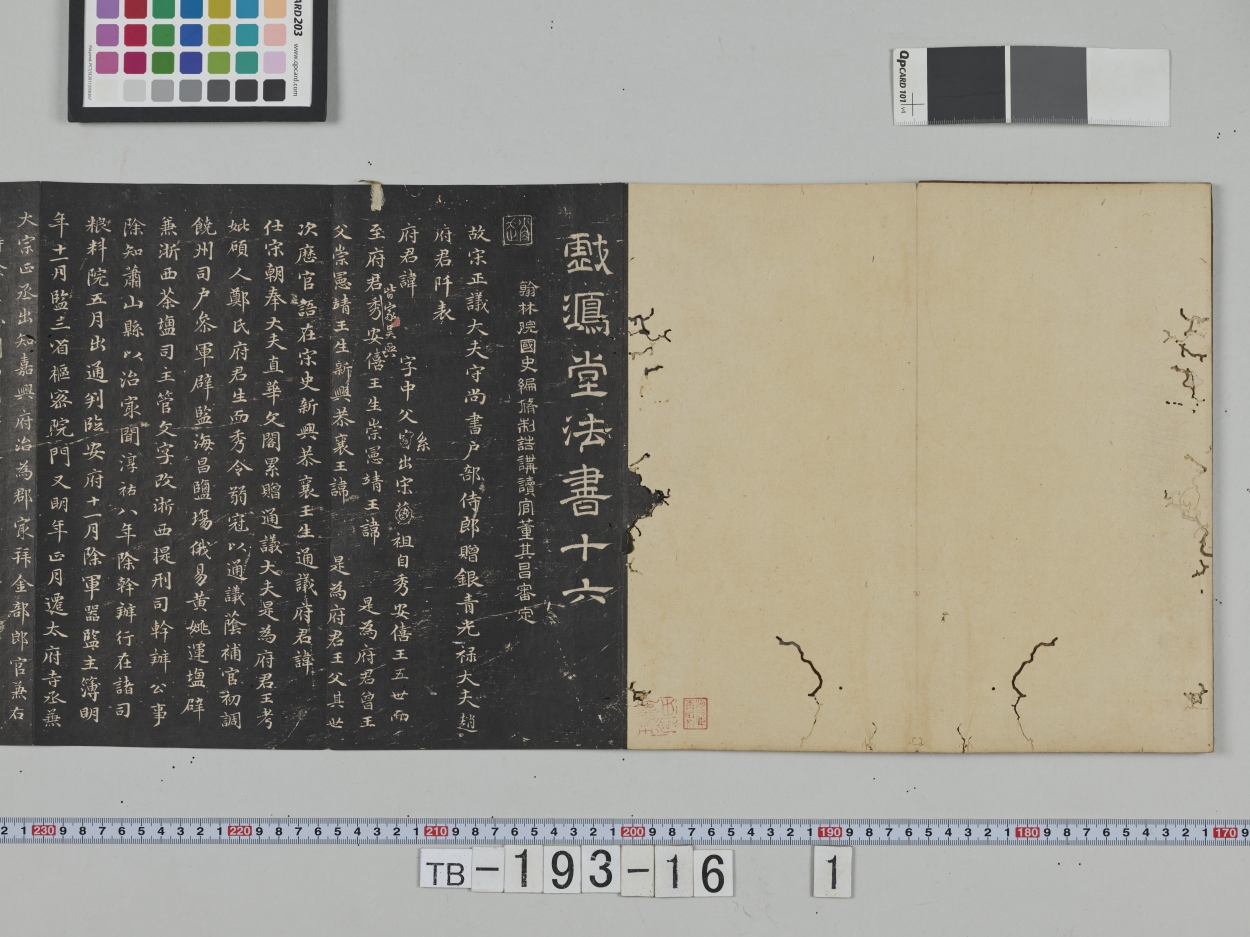 戲鴻堂法書十六
翰林院國史編脩制誥講讀官董其昌審定
故宋正議大夫守尚書戶部侍郎贈銀青光祿大夫趙
府君阡表
府君諱 字中父 出宗 祖自秀安僖王五世而
皆家吳興
系
至府君秀安僖王生崇憲靖王諱 是為府君曾王
父崇憲靖王生新興恭襄王諱 是為府君王父其世
次歷官語在宋史新興恭襄王生通議府君諱
仕宋朝奉大夫直華文閣累贈通議大夫是為府君王考
妣碩人鄭氏府君生而秀令弱冠以通議蔭補官初調
饒州司戶叅軍辟監海昌鹽塲俄易黃姚運塩辟
兼浙西茶塩司主管文字改浙西提刑司幹辦公事
除知蕭山縣以治㝡聞淳祐八年除幹辦行在諸司
粮料院五月出通判臨安府十一月除軍器監主簿明
年十一月監三省樞密院門又明年正月遷太府寺丞兼
大宗正丞出知嘉興府治為郡㝡拜金部郎官兼右
QPCARD 101 v4
CARD 203
www.qpcard.com
2 1 230 9 8 7 6 5 4 3 2 1 220 9 8 7 6 5 4 3 2 1 210 9 8 7 6 5 4 3 2 1 200 9 8 7 6 5 4 3 2 1 190 9 8 7 6 5 4 3 2 1 180 9 8 7 6 5 4 3 2 1 170 9
TB-193-16 1